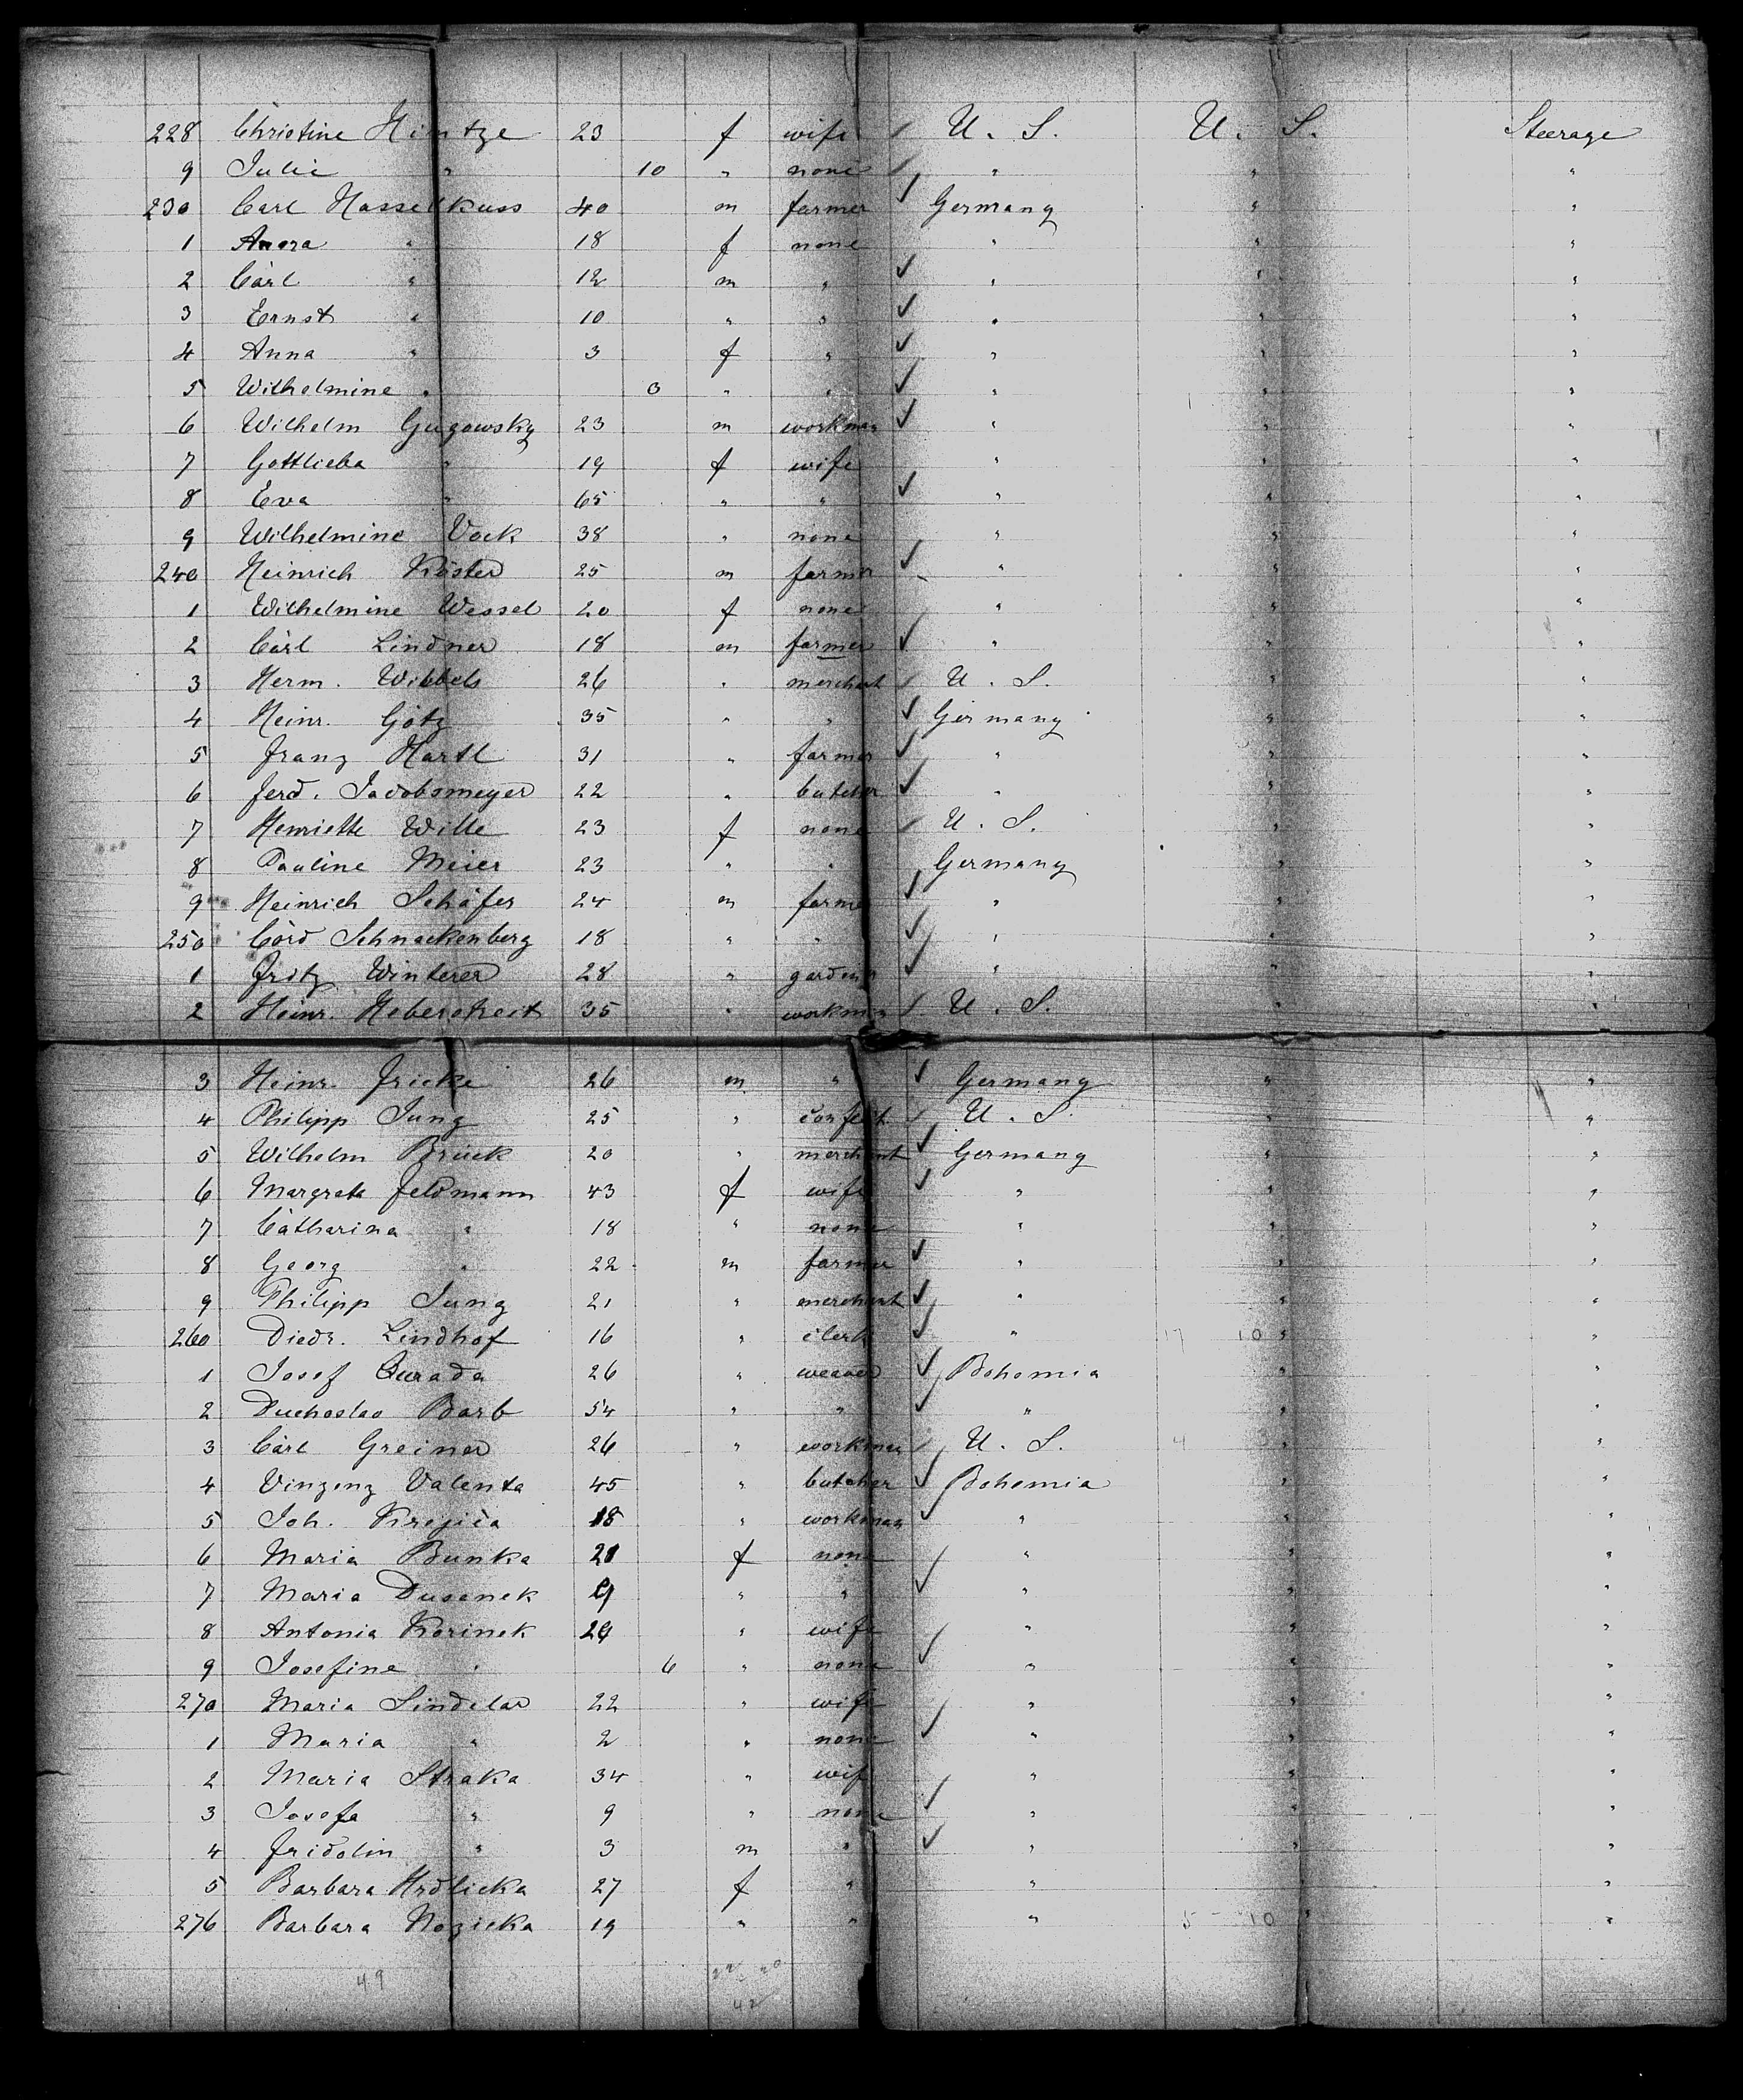 228 Christine Hintze 23 f wife U. S. U. S. Steerage
9 Julie " 10 " none " " "
230 Carl Hasselkuss 40 m farmer Germany " "
1 " 18 f none " " "
2 Carl " 12 m " " " "
3 Ernst " 10 " " " " "
4 Anna " 3 f " " " "
5 Wilhelmine " 3 " " " " "
6 Wilhelm Gugowsky 23 m workman " " "
7 Gottlieba " 19 f wife " " "
8 Eva " 65 " " " " "
9 Wilhelmine Vock 38 " none " " "
240 Heinrich Köster 25 m farmer " " "
1 Wilhelmine Wessel 20 f none " " "
2 Carl Lindner 18 m farmer " " "
3 Herm. Wibbels 26 " merchant U. S. " "
4 Heinr. Götz 35 " " Germany " "
5 Franz Hartl 31 " farmer " " "
6 Ferd. Jacobsmeyer 22 " butcher " " "
7 Henriette Wille 23 f none U. S. " "
8 Pauline Meier 23 " " Germany " "
9 Heinrich Schäfer 24 m farmer " " "
250 Cord Schnackenberg 18 " " " " "
1 Fritz Winterer 28 " garden " " "
2 Heinr. Heberstreit 35 " workman U. S. " "
3 Heinr. Fricke 26 m " Germany " "
4 Philipp Jung 25 " confect. U. S. " "
5 Wilhelm Brück 20 " merchant Germany " "
6 Margreta Feldmann 43 f wife " " "
7 Catharina " 18 " none " " "
8 Georg " 22 m farmer " " "
9 Philipp Jung 21 " merchant " " "
260 Diedr. Lindhof 16 " clerk " 17 10 " "
1 Josef 26 " weaver Bohemia " "
2 Barb 54 " " " " "
3 Carl Greiner 26 " workman U. S. 4 3 " "
4 Vinzenz Valenta 45 " butcher Bohemia " "
5 Joh. Krejica 18 " workman " " "
6 Maria Bunka 21 f none " " "
7 Maria Dusanek 9 " " " " "
8 Antonia Korinek 29 " wife " " "
9 Josefine " 6 " none " " "
270 Maria Sindelar 22 " wife " " "
1 Maria " 2 " none " " "
2 Maria Straka 34 " wife " " "
3 Josefa " 9 " none " " "
4 Fridolin " 3 m " " " "
5 Barbara Hrdlicka 27 f " " " "
276 Barbara Nozicka 19 " " " 5 10 " "
49 22 20
42